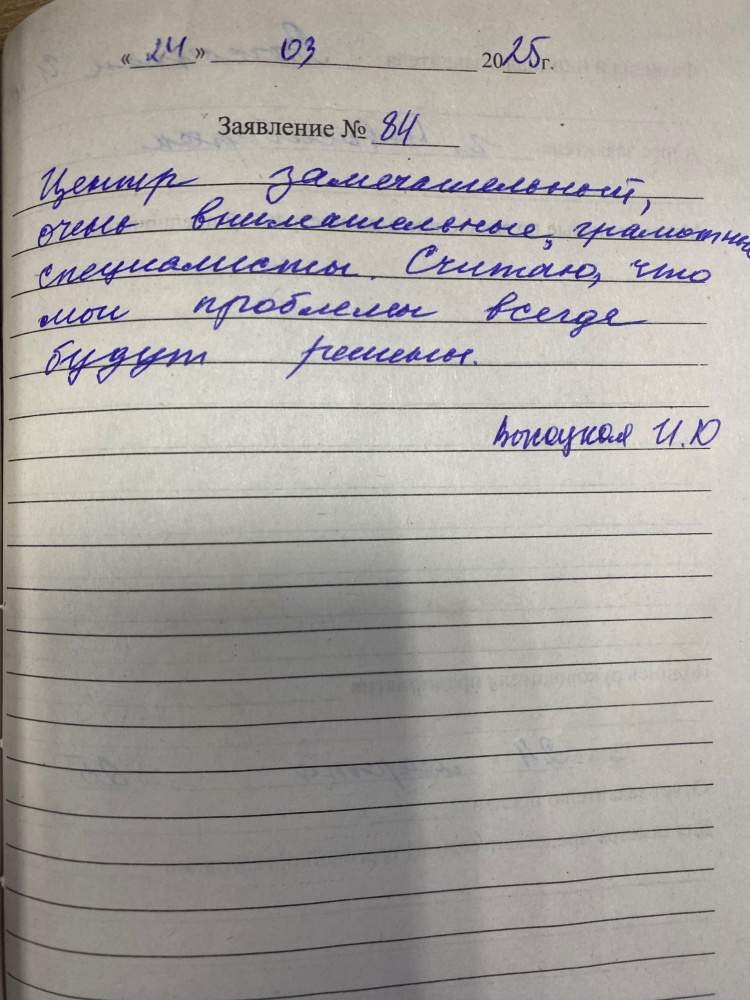 « 24 » 03 2025г.
Заявление № 84
Центр замечательный,
очень внимательные, грамотные
специалисты. Считаю, что
мои проблемы всегда
будут решены.
И.Ю